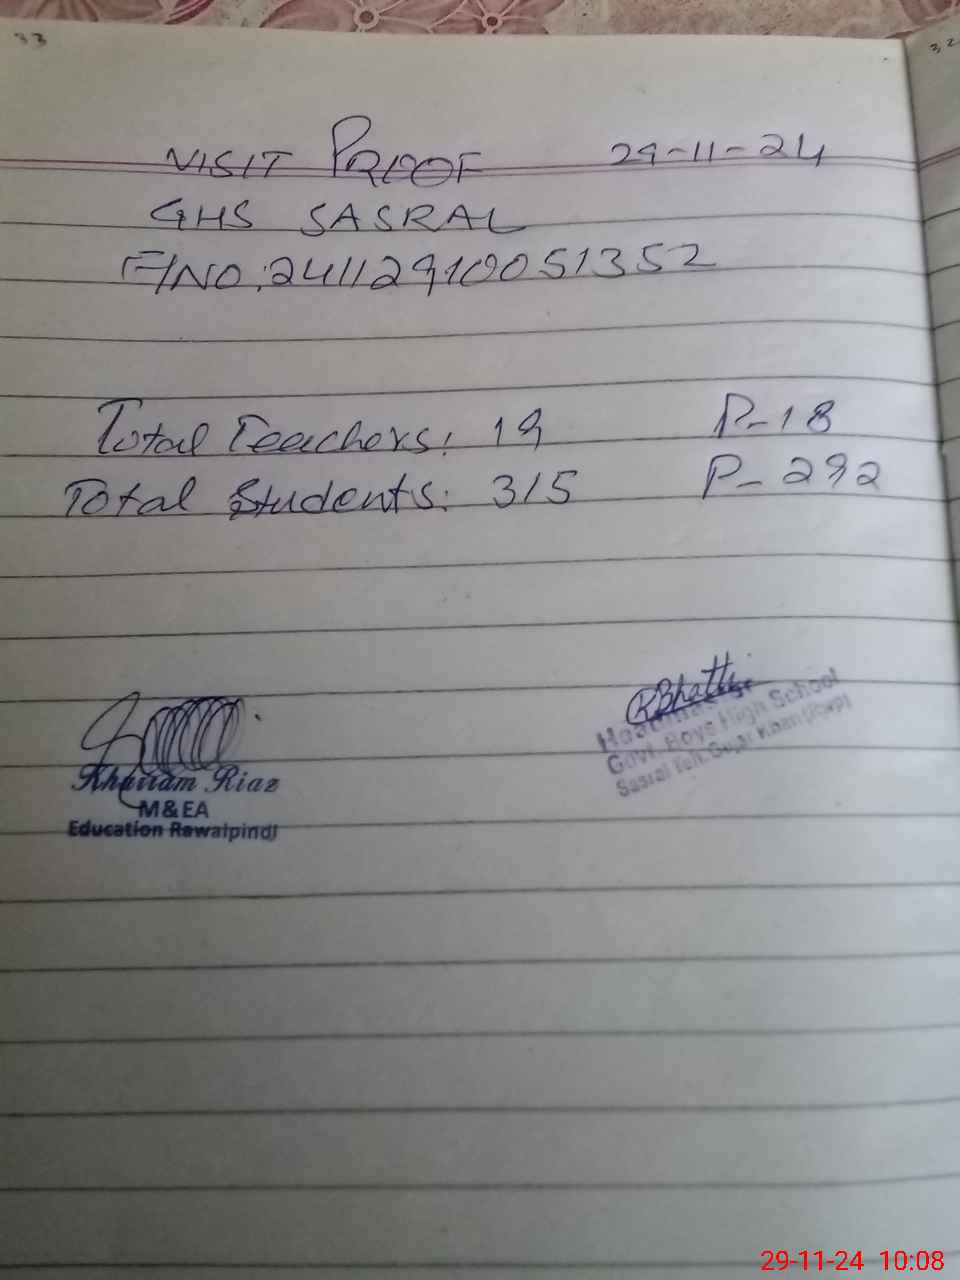 33
32
VISIT PROOF 29-11-24
GHS SASRAL
F/NO: 24112910051352
Total Teachers: 19 P-18
Total Students: 315 P-292
RBhatti
Khurram Riaz
M&EA
Education Rawalpindi
Headmaster
Govt. Boys High School
Sasral Teh. Gujar Khan (RWP)
29-11-24 10:08